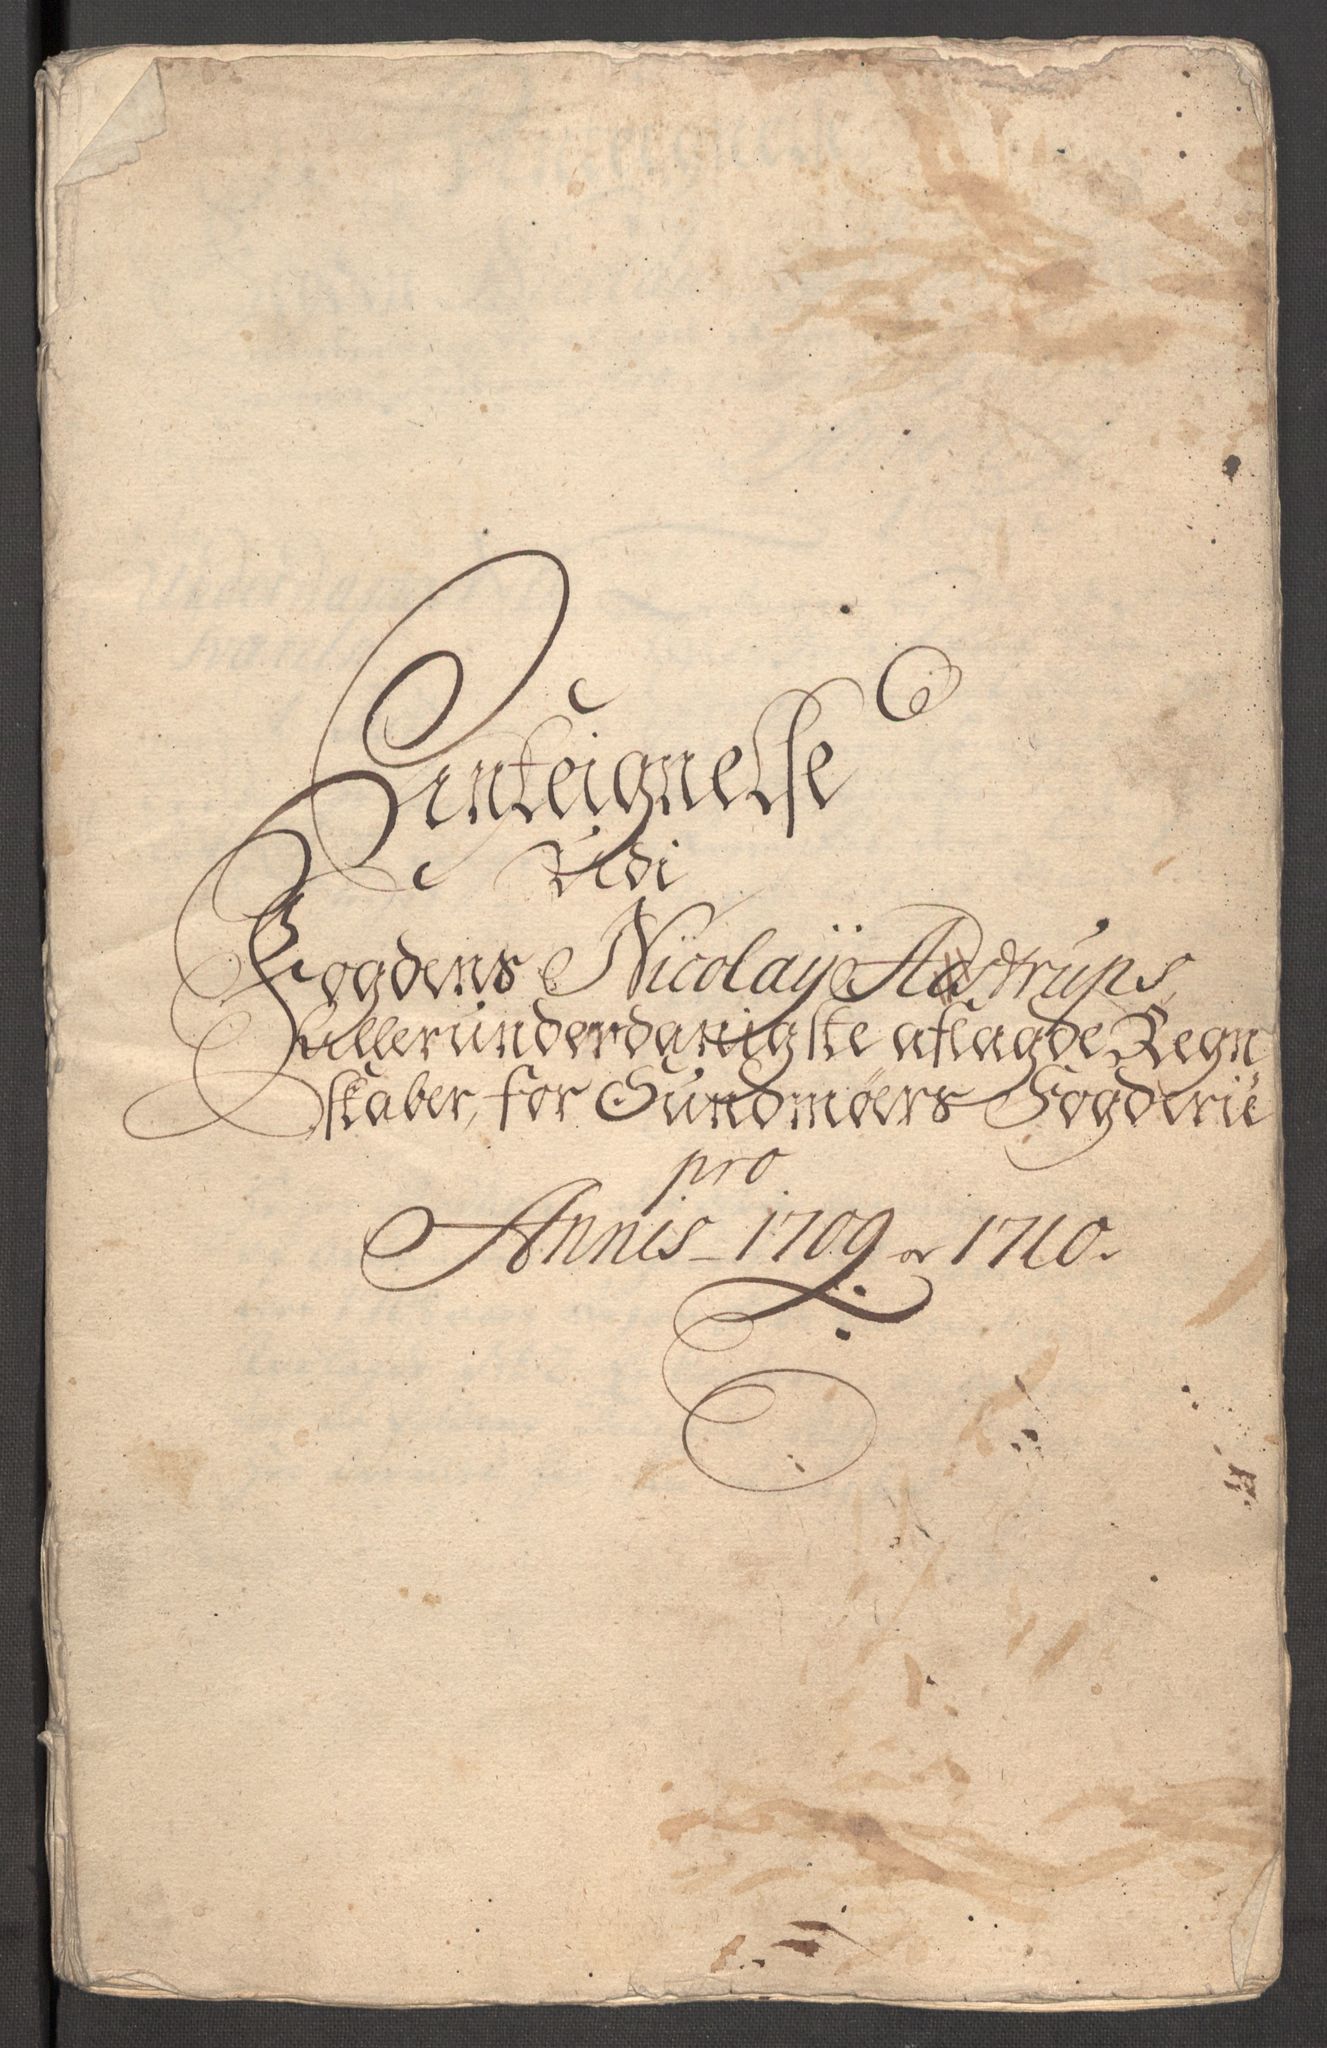 Anteignelse
Udi
Fogdens Nicolaÿ Astrups
Allerunderdanigste aflagde Regn
skaber, for Sundmøers Fogderie
pro
Annis 1709 or 1710.